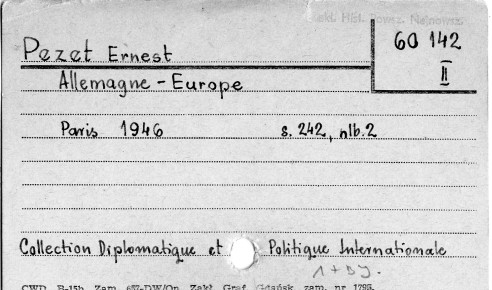 Zakł. Hist. Powsz. Najnowsz.
Pezet Ernest
60 142
II
Allemagne - Europe
Paris 1946 s. 242, nlb. 2
Collection Diplomatique et Politique Internationale
1 + DJ.
CWD B-15b Zam. 637-DW/Op. Zakł. Graf. Gdańsk zam. nr 1795.